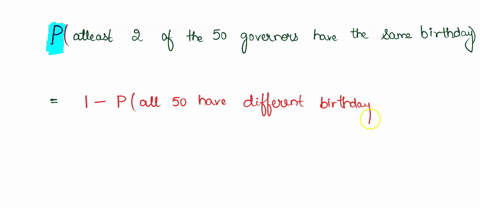 P(atleast 2 of the 50 governors have the same birthday)
= 1 - P(all 50 have different birthday